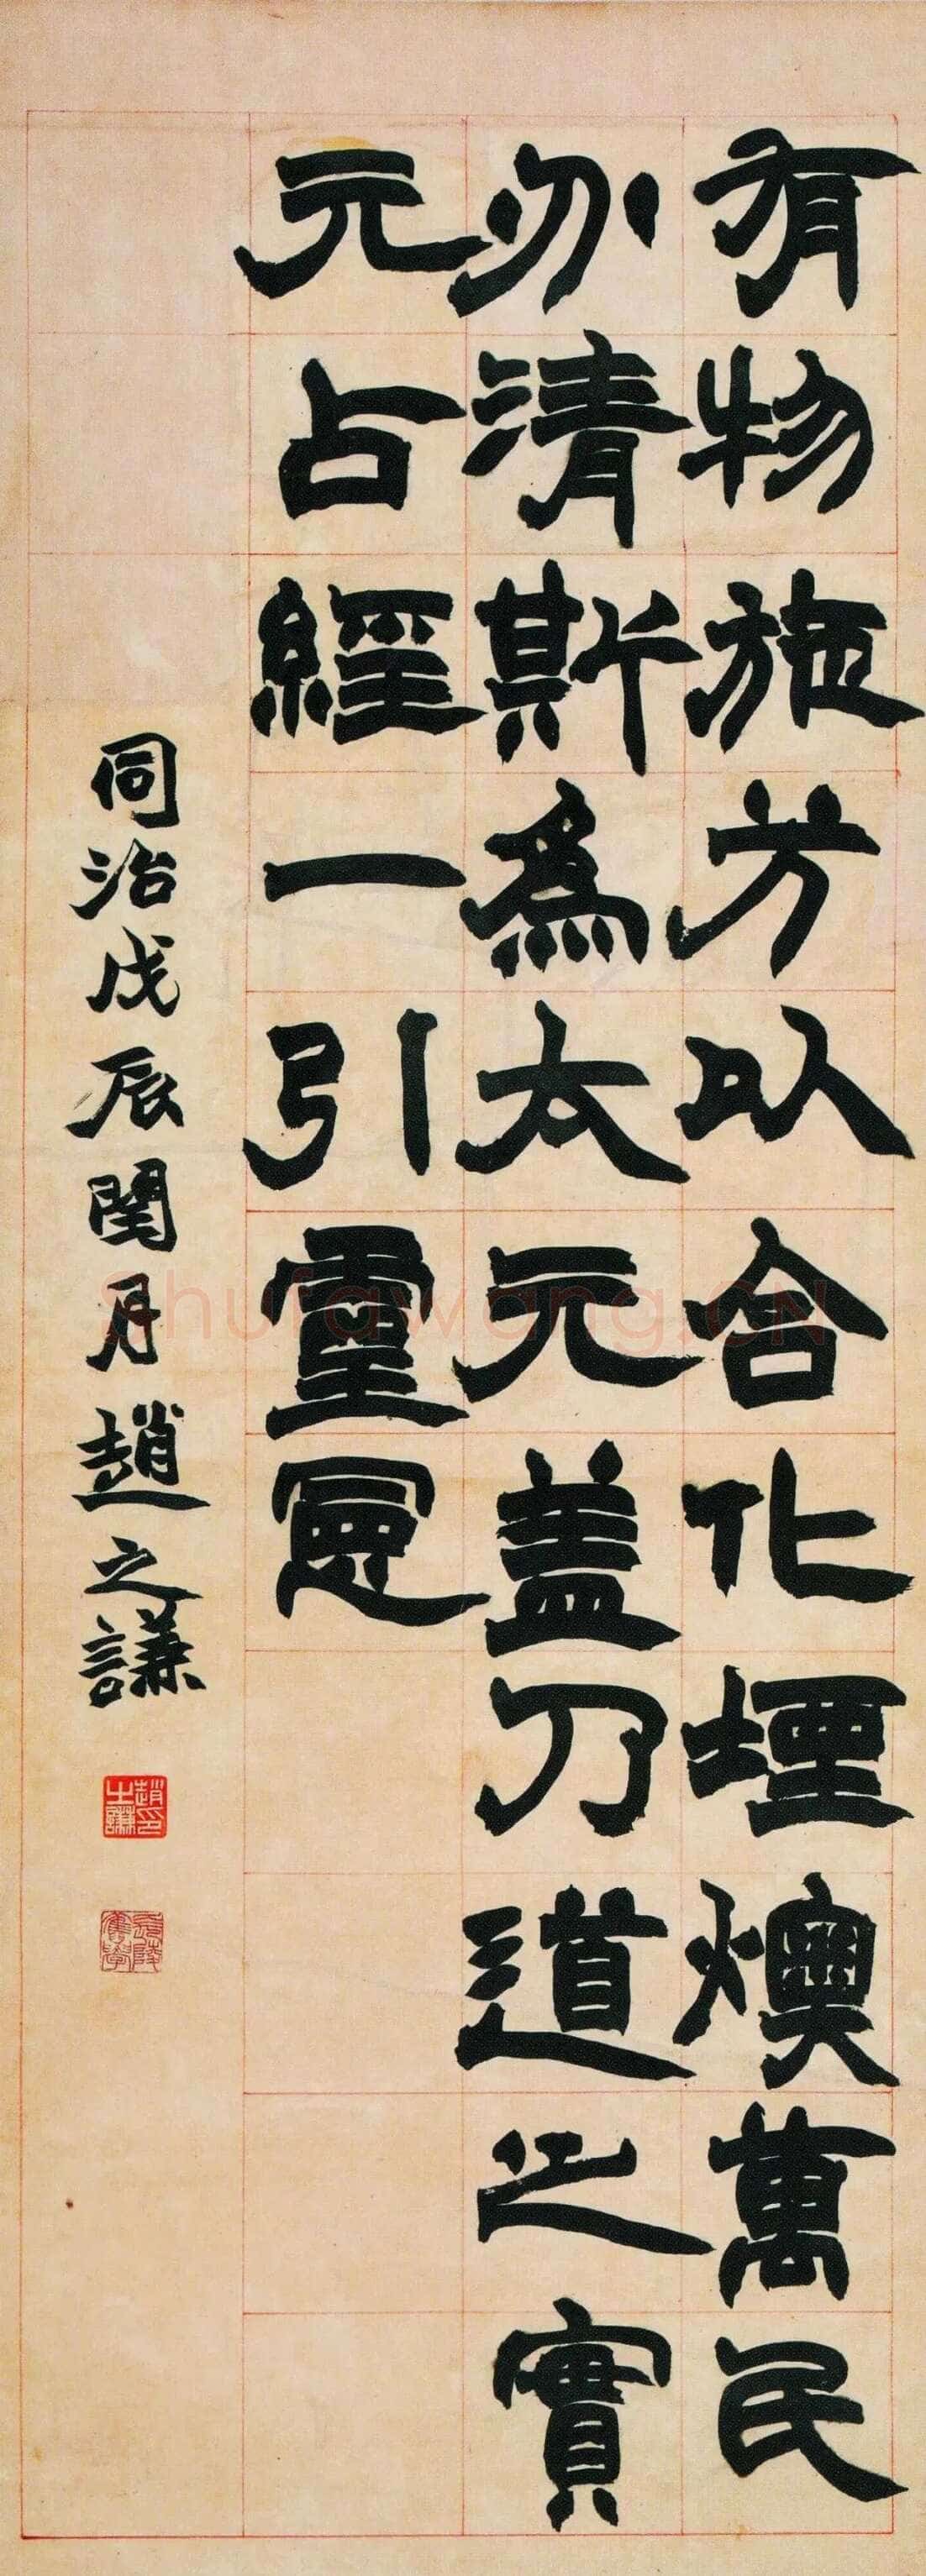 有物施方以合化堙燠萬民
亦清斯為太元盖乃道之實
元占經一引靈
同治戊辰閏月趙之謙
趙之謙印
Shufawang.CN